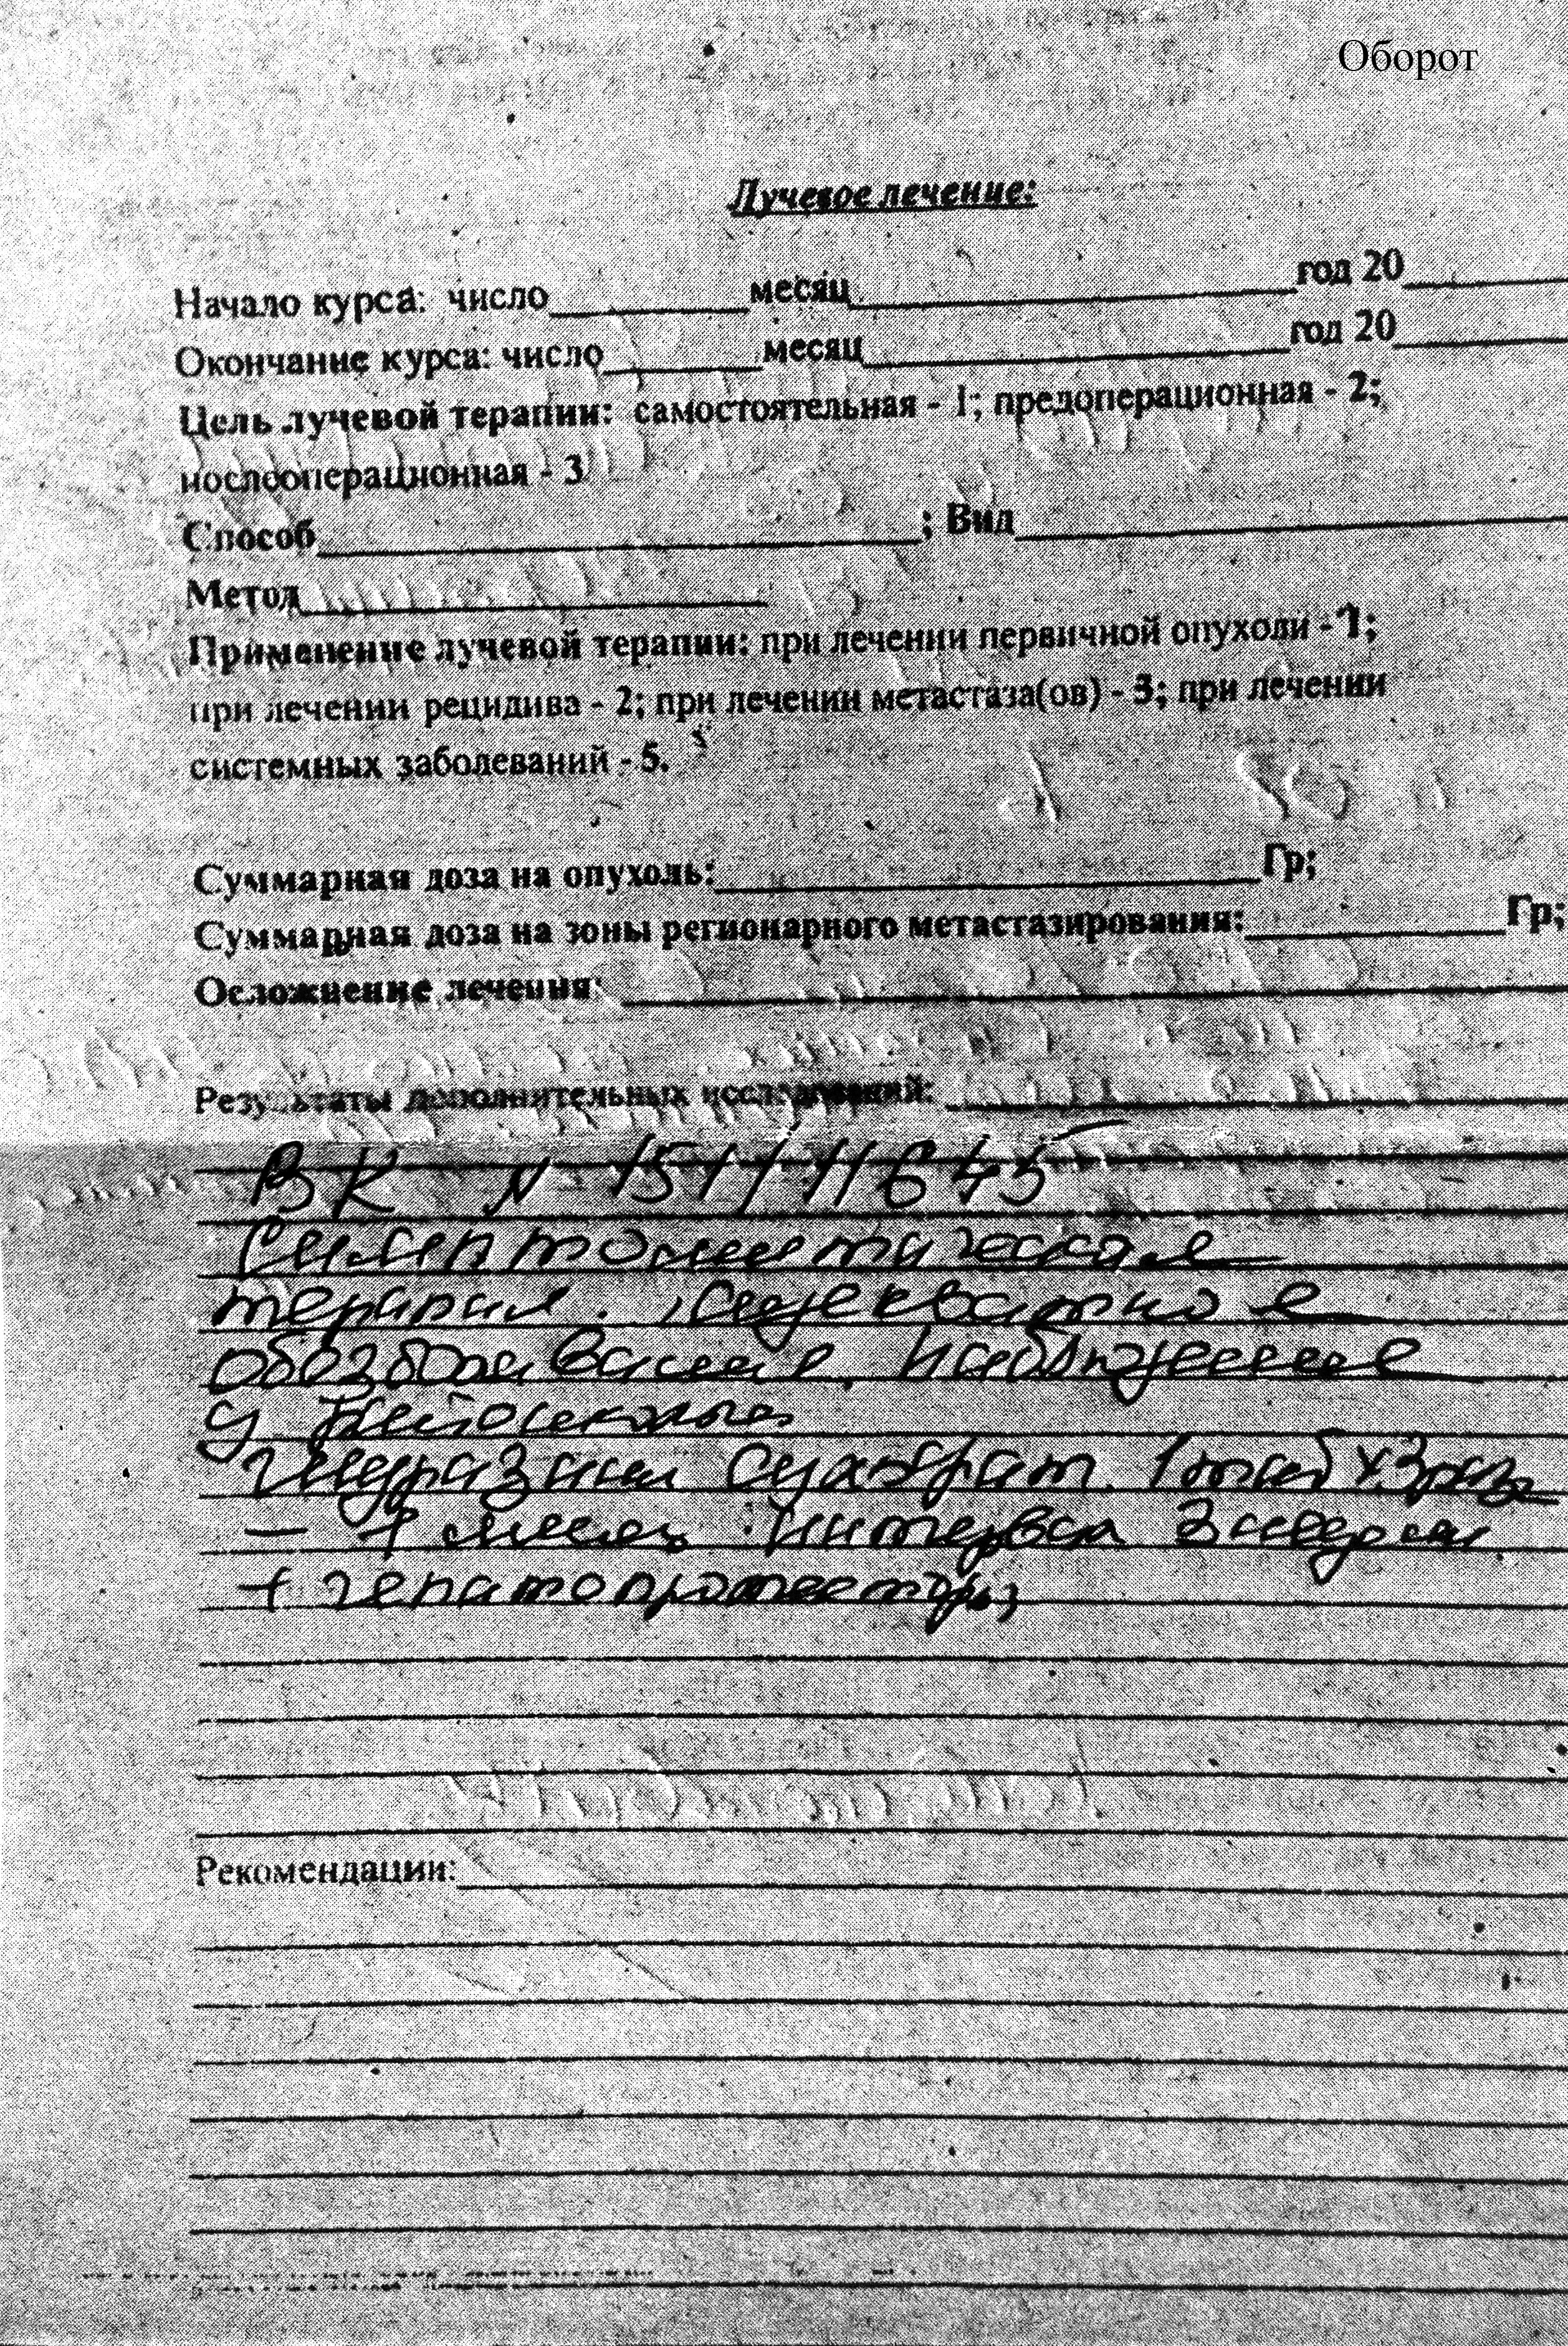 Оборот
Лучевое лечение:
Начало курса: число_______месяц_______________год 20______
Окончание курса: число______месяц_______________год 20______
Цель лучевой терапии: самостоятельная - 1; предоперационная - 2;
послеоперационная - 3
Способ____________________; Вид____________________
Метод________________
Применение лучевой терапии: при лечении первичной опухоли - 1;
при лечении рецидива - 2; при лечении метастаза(ов) - 3; при лечении
системных заболеваний - 5.
Суммарная доза на опухоль:__________________Гр;
Суммарная доза на зоны регионарного метастазирования:_________Гр;
Осложнение лечения: ______________________________
Результаты дополнительных исследований: ____________________
ВК №
Симптоматическая
терапия. Адекватное
обезболивание. Наблюдение
у
Гидразина сульфат 1 таб х 3 раза
– 1 месяц. Интервал 2 недели
+ гепатопротекторы
Рекомендации:______________________________